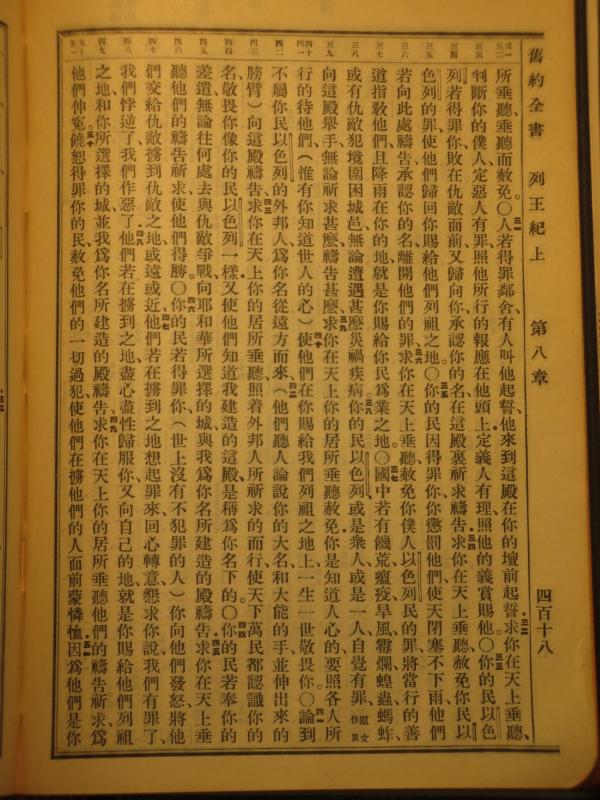 舊約全書 列王紀上 第八章 四百十八
所垂聽、垂聽而赦免。〇人若得罪鄰舍、有人叫他起誓、他來到這殿、在你的壇前起誓、求你在天上垂聽、
判斷你的僕人、定惡人有罪、照他所行的報應在他頭上、定義人有理、照他的義賞賜他。〇你的民以色
列若得罪你、敗在仇敵面前、又歸向你、承認你的名、在這殿裏祈求禱告、求你在天上垂聽、赦免你民以
色列的罪、使他們歸回你賜給他們列祖之地。〇你的民因得罪你、你懲罰他們、使天閉塞不下雨、他們
若向此處禱告、承認你的名、離開他們的罪、求你在天上垂聽、赦免你僕人以色列民的罪、將當行的善
道指教他們、且降雨在你的地、就是你賜給你民爲業之地。〇國中若有饑荒、瘟疫、旱風、霉爛、蝗蟲、螞蚱、
或有仇敵犯境、圍困城邑、無論遭遇甚麽災禍疾病、你的民以色列、或是衆人、或是一人、自覺有罪、原文作災
向這殿舉手、無論祈求甚麽、禱告甚麽、求你在天上你的居所垂聽赦免、你是知道人心的、要照各人所
行的待他們、（惟有你知道世人的心）使他們在你賜給我們列祖之地上、一生一世敬畏你。〇論到
不屬你民以色列的外邦人、爲你名從遠方而來、（他們聽人論說你的大名、和大能的手、並伸出來的
膀臂）向這殿禱告、求你在天上你的居所垂聽、照着外邦人所祈求的而行、使天下萬民都認識你的
名、敬畏你像你的民以色列一樣、又使他們知道我建造的這殿、是稱爲你名下的。〇你的民若奉你的
差遣、無論往何處去、與仇敵爭戰、向耶和華所選擇的城、與我爲你名所建造的殿禱告、求你在天上垂
聽他們的禱告祈求、使他們得勝。〇你的民若得罪你、（世上沒有不犯罪的人）你向他們發怒、將他
們交給仇敵擄到仇敵之地、或遠或近、他們若在擄到之地想起罪來、回心轉意、懇求你說、我們有罪了、
我們悖逆了、我們作惡了、他們若在擄到之地盡心盡性歸服你、又向自己的地、就是你賜給他們列祖
之地、和你所選擇的城、並我爲你名所建造的殿禱告、求你在天上你的居所垂聽他們的禱告祈求、爲
他們伸冤、饒恕得罪你的民、赦免他們的一切過犯、使他們在擄他們的人面前蒙憐恤、因爲他們是你